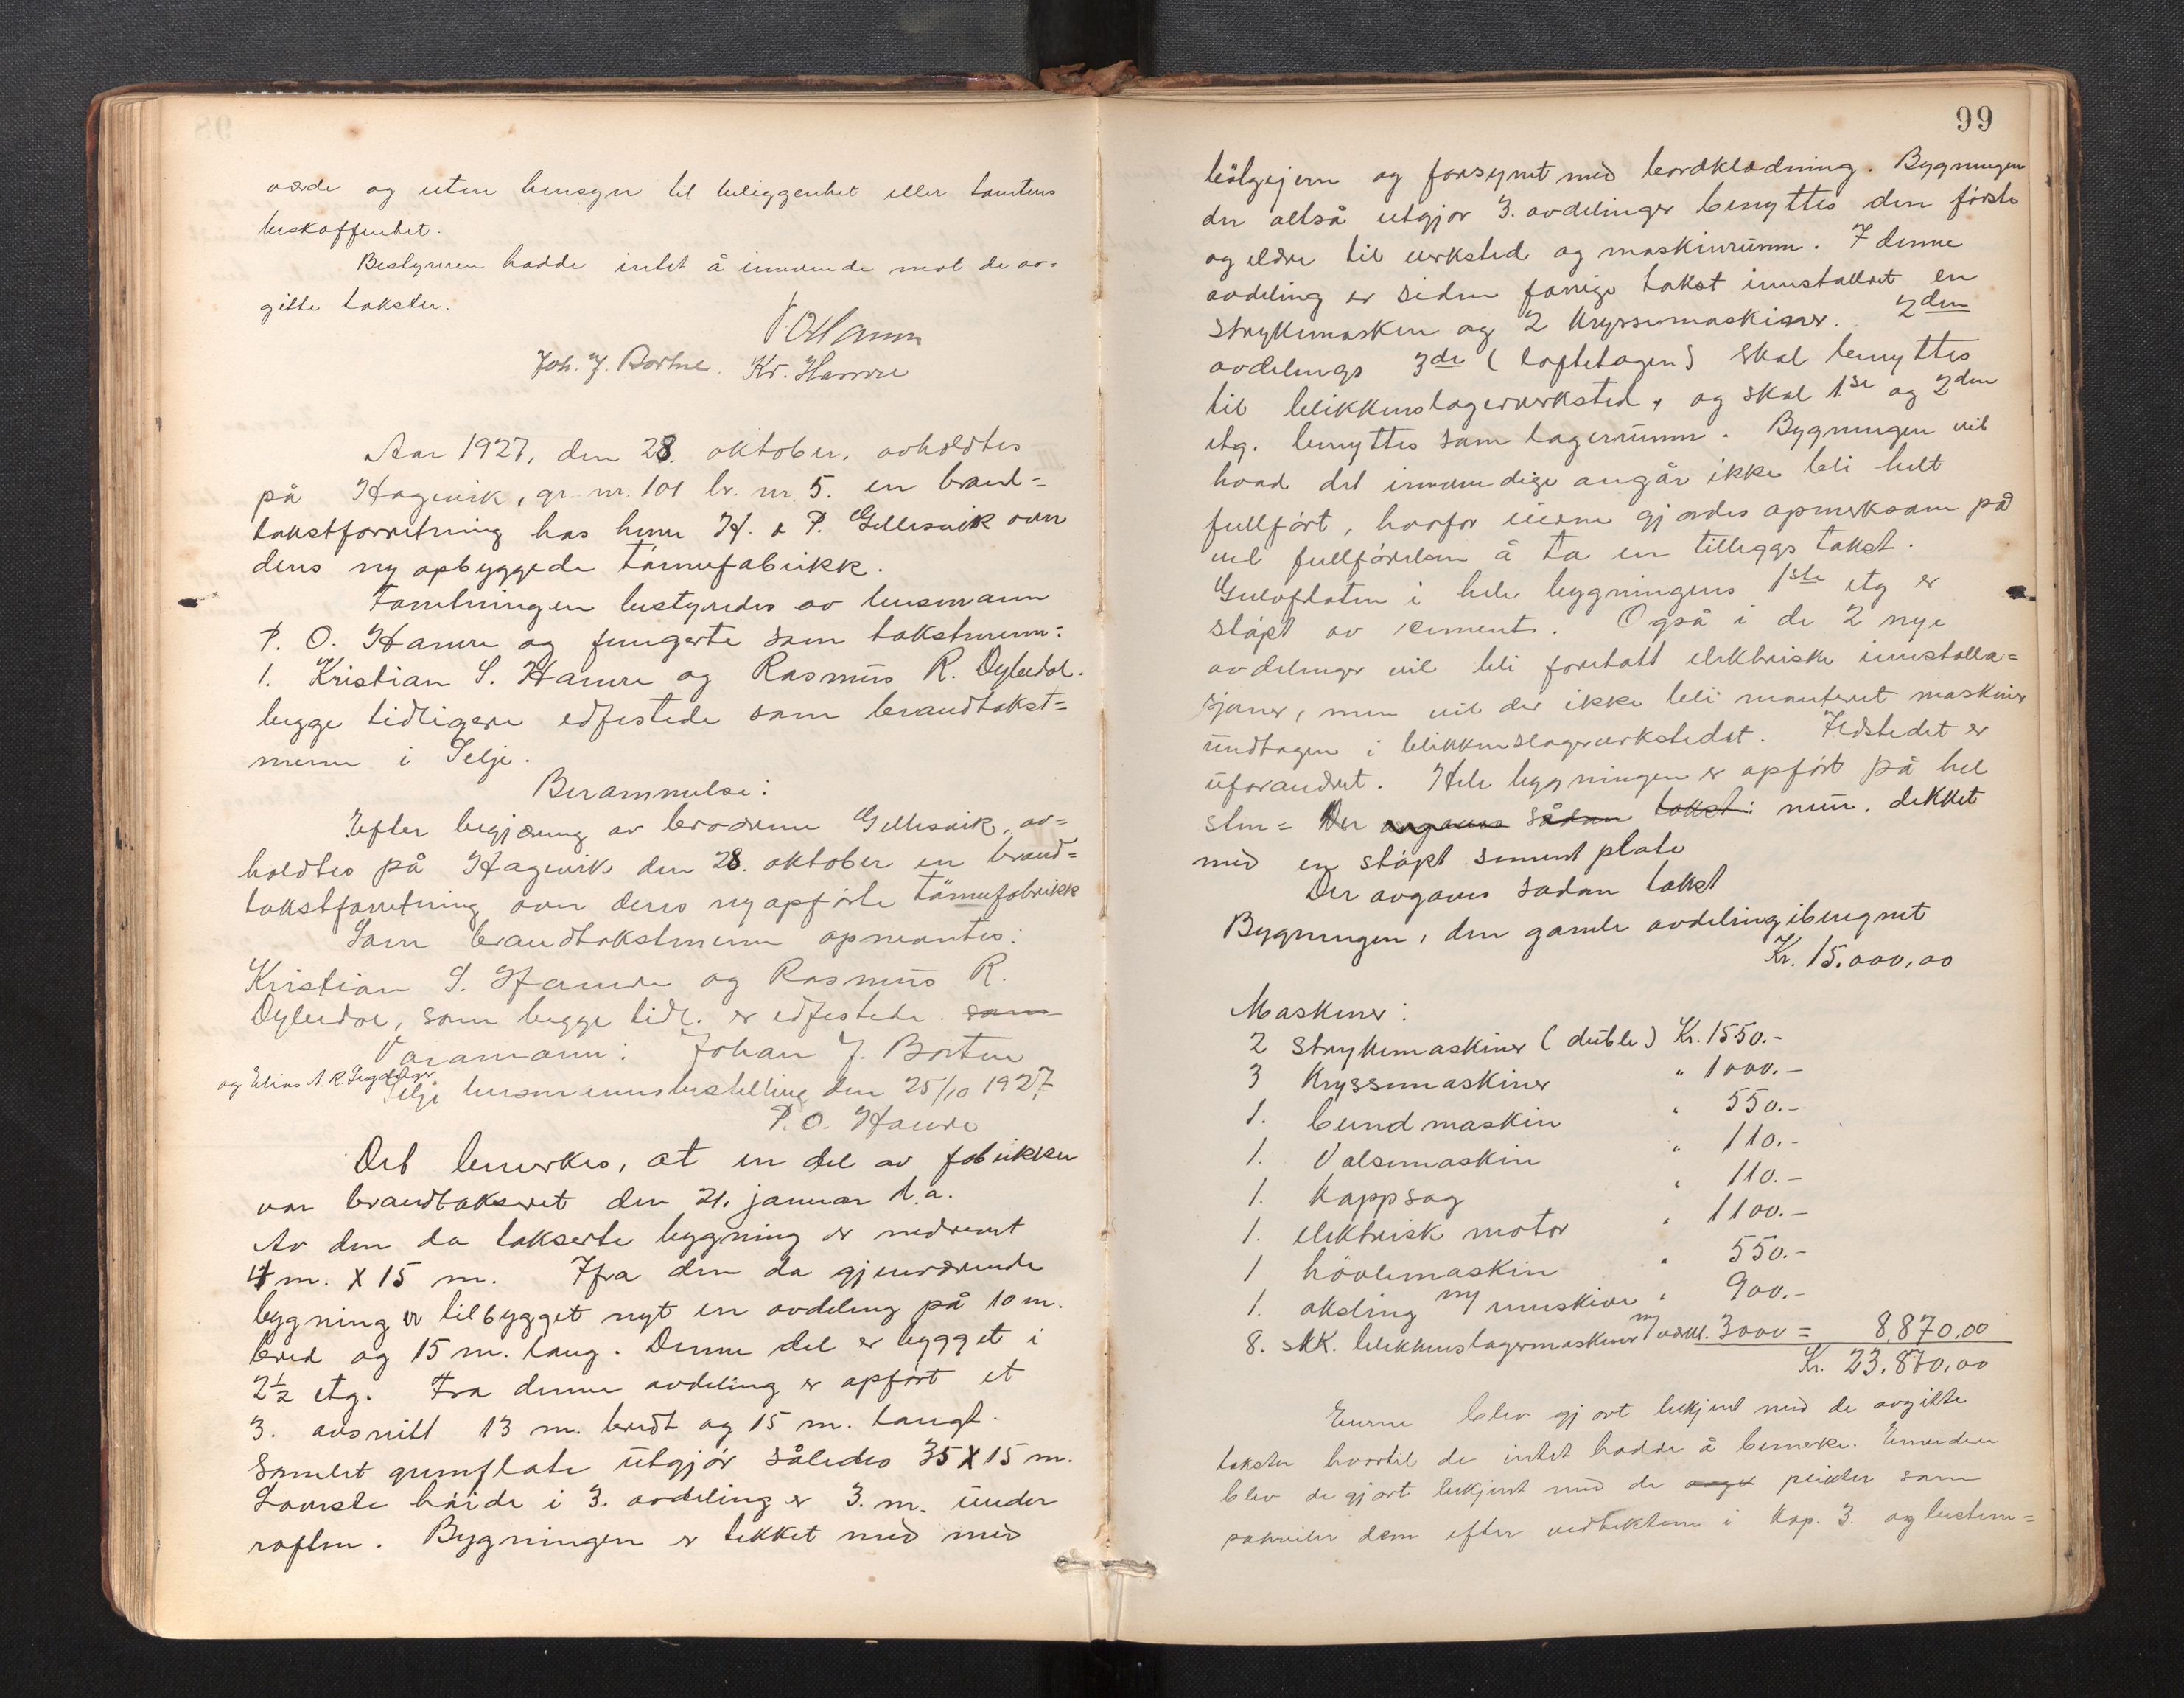 værde og uten hensyn til beliggenhet eller tomtens
beskaffenhet.
Bestyreren hadde intet å innvende mot de av-
gitte takster.
P O Hamre
Joh. J. Bortne. Kr. Hamre
Aar 1927, den 28. oktober, avholdtes
på Hagevik, gr. nr. 101 br. nr. 5. en brand-
takstforretning hos herr H. & P. Gillesvik over
deres ny opbyggede tønnefabrikk.
Forretningen bestyredes av lensmann
P. O. Hamre og fungerte som takstmenn:
1. Kristian S. Hamre og Rasmus R. Dybedal.
begge tidligere edfestede som brandtakst-
menn i Selje.
Berammelse:
Efter begjæring av brødrene Gillesvik, av-
holdtes på Hagevik den 28. oktober en brand-
takstforretning over deres nyopførte tønnefabrikk
Som brandtakstmenn opnevntes:
Kristian S. Hamre og Rasmus R.
Dybedal, som begge tidl. er edfestede. som
Varamann: Johan J. Bortne
og Elias A. R.
Selje lensmannsbestilling den 25/10 1927.
P. O. Hamre
Det bemerkes, at en del av fabrikken
var brandtakseret den 21. januar d.a.
Av den da takserte bygning er nedrevet
4 m. x 15 m. Ifra den da gjenværende
bygning er tilbygget nyt en avdeling på 10 m.
bred og 15 m. lang. Denne del er bygget i
2½ etg. Fra denne avdeling er opført et
3. avsnitt 13 m. bredt og 15 m. langt.
Samlet grunflate utgjør således 35 x 15 m.
Laveste høide i 3. avdeling er 3. m. under
raften. Bygningen er tekket med med
99
bølgejern og forsynt med bordklædning. Bygningen
der altså utgjør 3. avdelinger benyttes den første
og eldre til verksted og maskinrumm. I denne
avdeling er siden forrige takst innstalleret en
strykemaskin og 2 kryssemaskiner. 2den
avdelings 3de (loftetagen) skal benyttes
til blikkenslagerverksted, og skal 1ste og 2den
etg. benyttes som lagerrumm. Bygningen vil
hvad det innvendige angår ikke bli helt
fullført, hvorfor eierne gjordes opmerksom på
ved fullførelsen å ta en tilleggs takst.
Gulvflaten i hele bygningens 1ste etg er
støpt av cement. Også i de 2 nye
avdelinger vil bli foretatt elektriske innstalla-
sjoner, men vil der ikke bli monteret maskiner
undtagen i blikkenslagerverkstedet. Ildstedet er
uforandret. Hele bygningen er opført på hel
sten= Der avgaves sådan takst: mur. dekket
med en støpt sement plate
Der avgaves sådan takst
Bygningen, den gamle avdeling iberegnet
Kr. 15.000,00
Maskiner:
2 strykemaskiner (duble) Kr. 1550.-
3 kryssemaskiner " 1000.-
1. bundmaskin " 550.-
1. Valsemaskin " 110.-
1. kappsag " 110.-
1. elektrisk motor " 1100.-
1 høvlemaskin " 550.-
1. aksling m/ remskiver " 900.-
8. stk. blikkenslagermaskiner m/ verkt. 3000 = 8.870,00
Kr. 23.870,00
Eierne blev gjort bekjent med de avgitte
takster hvortil de intet hadde å bemerke. Envidere
blev de gjort bekjent med de plikter som
påhviler dem efter vedtektene i kap. 3. og bestem-